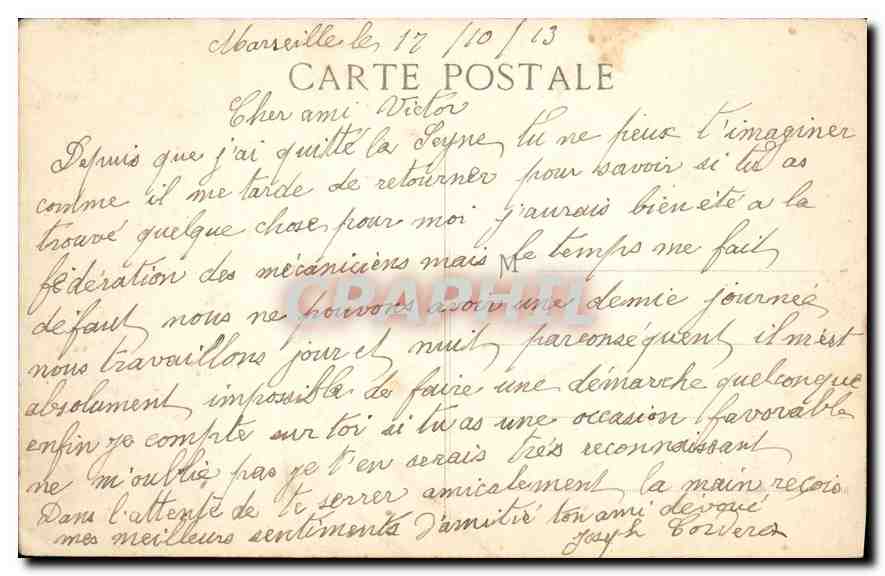 Marseille le 17/10/13
CARTE POSTALE
Cher ami Victor
Depuis que j'ai quitté la Seyne, tu ne peux t'imaginer
comme il me tarde de retourner pour savoir si tu as
trouvé quelque chose pour moi j'aurais bien été a la
fédération des mécaniciens mais le temps me fait
M
CRAPHIL
défaut nous ne pouvons avoir une demie journée
nous travaillons jour et nuit, parconséquent, il m'est
absolument impossible de faire une démarche quelconque
enfin je compte sur toi si tu as une occasion favorable
ne m'oublie pas je t'en serais très reconnaissant
Dans l'attente de te serrer amicalement la main reçois
mes meilleurs sentiments d'amitié ton ami dévoué
Joseph